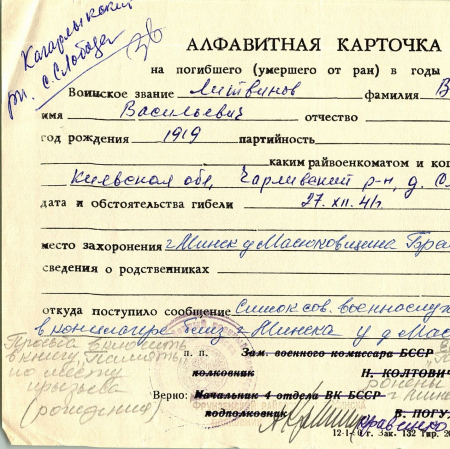 Кагарлыкский
рн. с. Слобода
АЛФАВИТНАЯ КАРТОЧКА
на погибшего (умершего от ран) в годы
Воинское звание Литвинов фамилия В
имя Васильевич отчество
год рождения 1919 партийность
каким райвоенкоматом и ког
Киевская обл, Чарливский р-н, д. Сл
дата и обстоятельства гибели 27. XII. 41г
место захоронения г Минск у д Масюковщина Бра
сведения о родственниках
откуда поступило сообщение Список сов. военнослу
в концлагере близ г. Минска у д Мас
Просьба включить
в книгу „Память„
по месту
призыва
(рождения)
п. п. Зам. военного комиссара БССР
полковник Н. КОЛТОВИЧ
Верно: Начальник 4 отдела ВК БССР
г Мин
подполковник В. ПОГУ
Кравченко
12-1-0 г. Зак. 132 Тир. 20